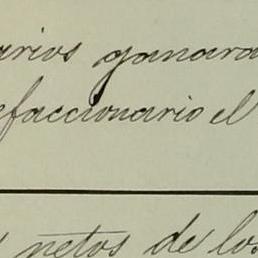 arios ganara
efaccionario el
netos de los